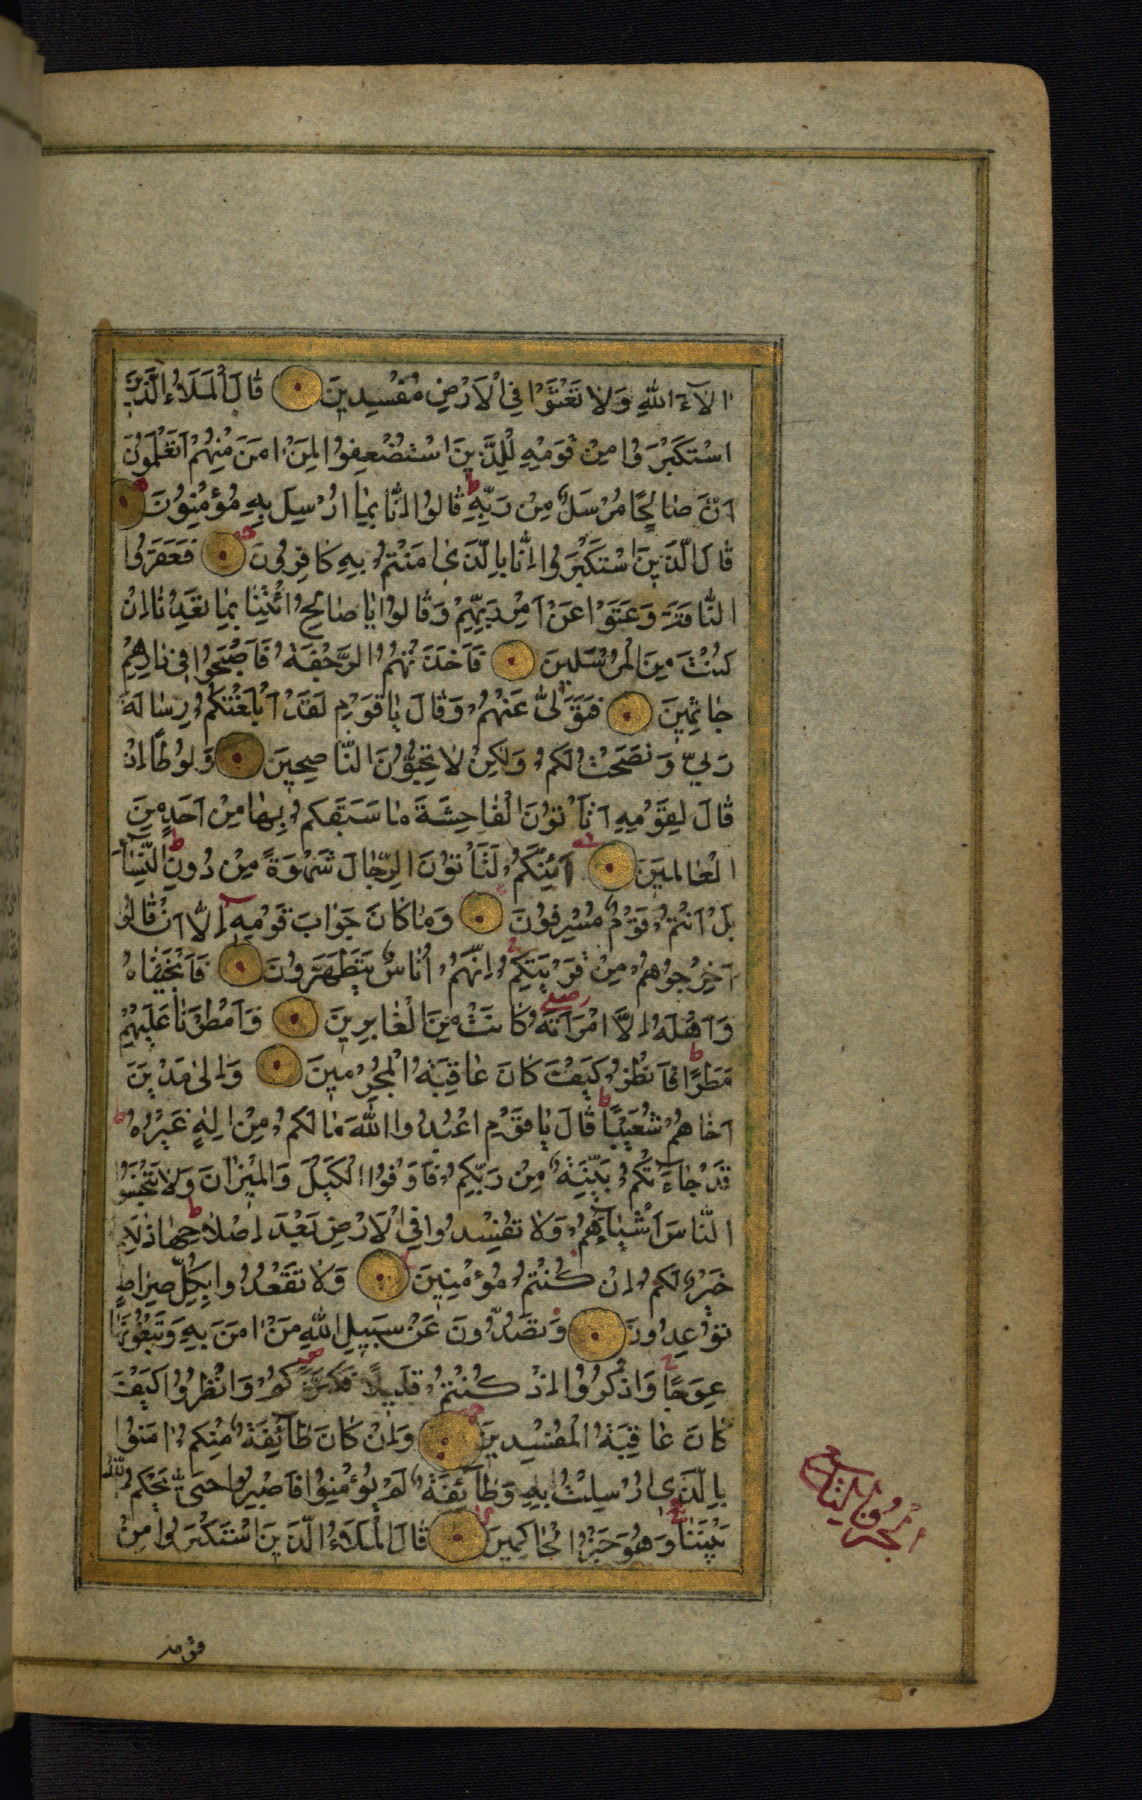 اٰلآءَ اللهِ وَلاٰ تَعْثَوْا فِي الْاَرْضِ مُفْسِدِينَ قٰالَ الْمَلَاُ الَّذِينَ
اسْتَكْبَرُوا مِنْ قَوْمِهِ لِلَّذِينَ اسْتُضْعِفُوا لِمَنْ اٰمَنَ مِنْهُمْ اَتَعْلَمُونَ
اَنَّ صٰالِحًا مُرْسَلٌ مِنْ رَبِّهِ قٰالُوا اِنّٰا بِمٰا اُرْسِلَ بِهِ مُؤْمِنُونَ
قٰالَ الَّذِينَ اسْتَكْبَرُوا اِنّٰا بِالَّذِى اٰمَنْتُمْ بِهِ كٰافِرُونَ فَعَقَرُوا
النّٰاقَةَ وَعَتَوْا عَنْ اَمْرِ رَبِّهِمْ وَقٰالُوا يٰا صٰالِحُ ائْتِنٰا بِمٰا تَعِدُنٰا اِنْ
كُنْتَ مِنَ الْمُرْسَلِينَ فَاَخَذَتْهُمُ الرَّجْفَةُ فَاَصْبَحُوا فِي دٰارِهِمْ
جٰاثِمِينَ فَتَوَلّٰى عَنْهُمْ وَقٰالَ يٰا قَوْمِ لَقَدْ اَبْلَغْتُكُمْ رِسٰالَةَ
رَبِّي وَنَصَحْتُ لَكُمْ وَلٰكِنْ لاٰ تُحِبُّونَ النّٰاصِحِينَ وَلُوطًا اِذْ
قٰالَ لِقَوْمِهِ اَتَأْتُونَ الْفٰاحِشَةَ مٰا سَبَقَكُمْ بِهٰا مِنْ اَحَدٍ مِنَ
الْعٰالَمِينَ اَئِنَّكُمْ لَتَأْتُونَ الرِّجٰالَ شَهْوَةً مِنْ دُونِ النِّسٰآءِ
بَلْ اَنْتُمْ قَوْمٌ مُسْرِفُونَ وَمٰا كٰانَ جَوٰابَ قَوْمِهِ اِلاّٰ اَنْ قٰالُوا
اَخْرِجُوهُمْ مِنْ قَرْيَتِكُمْ اِنَّهُمْ اُنٰاسٌ يَتَطَهَّرُونَ فَاَنْجَيْنٰاهُ
وَاَهْلَهُ اِلاَّ امْرَاَتَهُ كٰانَتْ مِنَ الْغٰابِرِينَ وَاَمْطَرْنٰا عَلَيْهِمْ
مَطَرًا فَانْظُرْ كَيْفَ كٰانَ عٰاقِبَةُ الْمُجْرِمِينَ وَاِلىٰ مَدْيَنَ
اَخٰاهُمْ شُعَيْبًا قٰالَ يٰا قَوْمِ اعْبُدُوا اللهَ مٰا لَكُمْ مِنْ اِلٰهٍ غَيْرُهُ
قَدْ جٰاءَتْكُمْ بَيِّنَةٌ مِنْ رَبِّكُمْ فَاَوْفُوا الْكَيْلَ وَالْمِيْزٰانَ وَلاٰ تَبْخَسُوا
النّٰاسَ اَشْيٰاءَهُمْ وَلاٰ تُفْسِدُوا فِي الْاَرْضِ بَعْدَ اِصْلاٰحِهٰا ذٰلِكُمْ
خَيْرٌ لَكُمْ اِنْ كُنْتُمْ مُؤْمِنِينَ وَلاٰ تَقْعُدُوا بِكُلِّ صِرٰاطٍ
تُوْعِدُونَ وَتَصُدُّونَ عَنْ سَبِيلِ اللهِ مَنْ اٰمَنَ بِهِ وَتَبْغُونَهٰا
عِوَجًا وَاذْكُرُوا اِذْ كُنْتُمْ قَلِيلاً فَكَثَّرَكُمْ وَانْظُرُوا كَيْفَ
كٰانَ عٰاقِبَةُ الْمُفْسِدِينَ وَاِنْ كٰانَ طٰآئِفَةٌ مِنْكُمْ اٰمَنُوا
بِالَّذِى اُرْسِلْتُ بِهِ وَطٰآئِفَةٌ لَمْ يُؤْمِنُوا فَاصْبِرُوا حَتّٰى يَحْكُمَ اللهُ
بَيْنَنٰا وَهُوَ خَيْرُ الْحٰاكِمِينَ قٰالَ الْمَلَاُ الَّذِينَ اسْتَكْبَرُوا مِنْ
الجزؤ التاسع
قومه